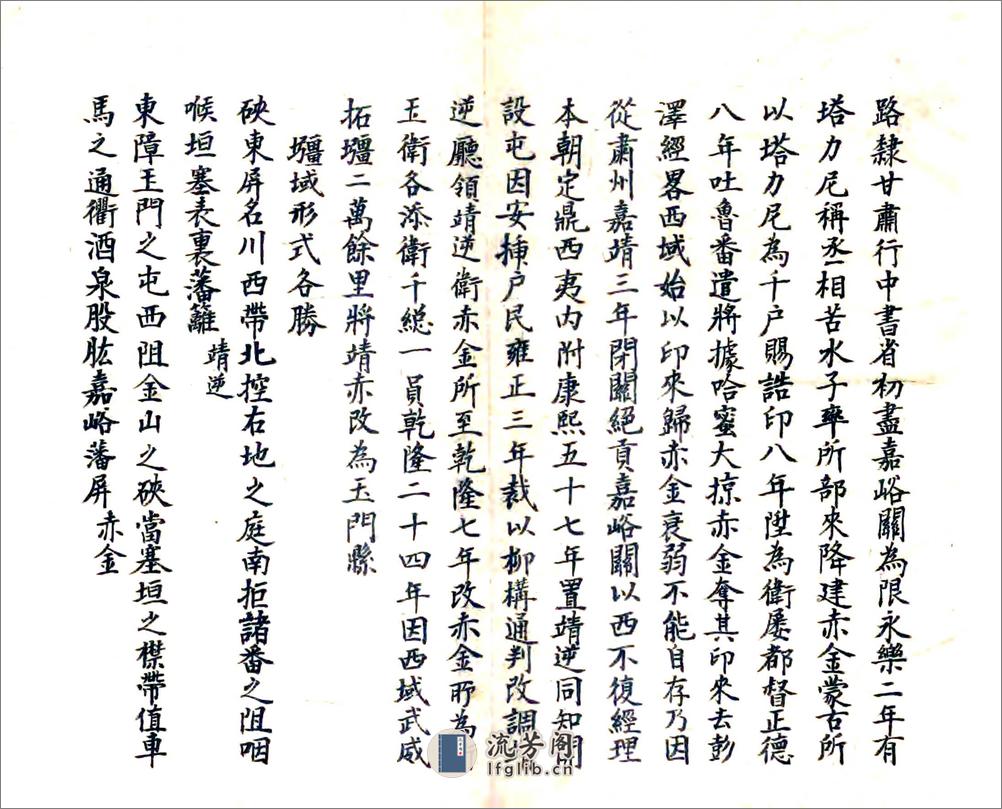 路隸甘肅行中書省初盡嘉峪關為限永樂二年有
塔力尼稱丞相苦水子率所部來降建赤金蒙古所
以塔力尼為千戶賜誥印八年陞為衛屡都督正德
八年吐魯番遣將據哈蜜大掠赤金奪其印來去彭
澤經畧西域始以印來歸赤金衰弱不能自存乃因
從肅州嘉靖三年閉關絕貢嘉峪關以西不復經理
本朝定鼎西夷内附康熙五十七年置靖逆同知開
設屯因安揷户民雍正三年裁以柳構通判改調
逆廳領靖逆衛赤金所至乾隆七年改赤金所為
玉衛各添衛千総一員乾隆二十四年因西域武威
拓壃二萬餘里將靖赤改為玉門縣
壃域形式各勝
硤東屏名川西帶北控右地之庭南拒諸番之阻咽
喉垣塞表裏藩籬 靖逆
東障玉門之屯西阻金山之硤當塞垣之襟帶值車
馬之通衢酒泉股肱嘉峪藩屏 赤金
流芳阁
lfglib.cn